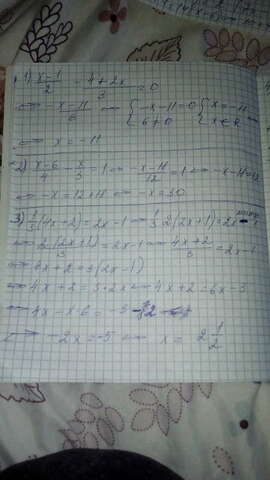 1) (x-1)/2 - (4+2x)/3 = 0
⟺ (-x-11)/6 ⟺ { -x-11=0 { x=-11
6≠0 x∈R
⟺ x=-11
2) (x-6)/4 - x/3 = 1 ⟺ (-x-18)/12 = 1 ⟺ -x-18=12
⟺ -x=12+18 ⟺ -x=30
3) 1/3(4x+2)=2x-1 ⟺ 1/3·2(2x+1)=2x-1
⟺ 2(2x+1)/3=2x-1 ⟺ (4x+2)/3=2x-1
⟺ 4x+2=3(2x-1)
⟺ 4x+2=3·2x ⟺ 4x+2=6x-3
⟺ 4x-x6=-3-2
⟺ -2x=-5 ⟺ x=2 1/2